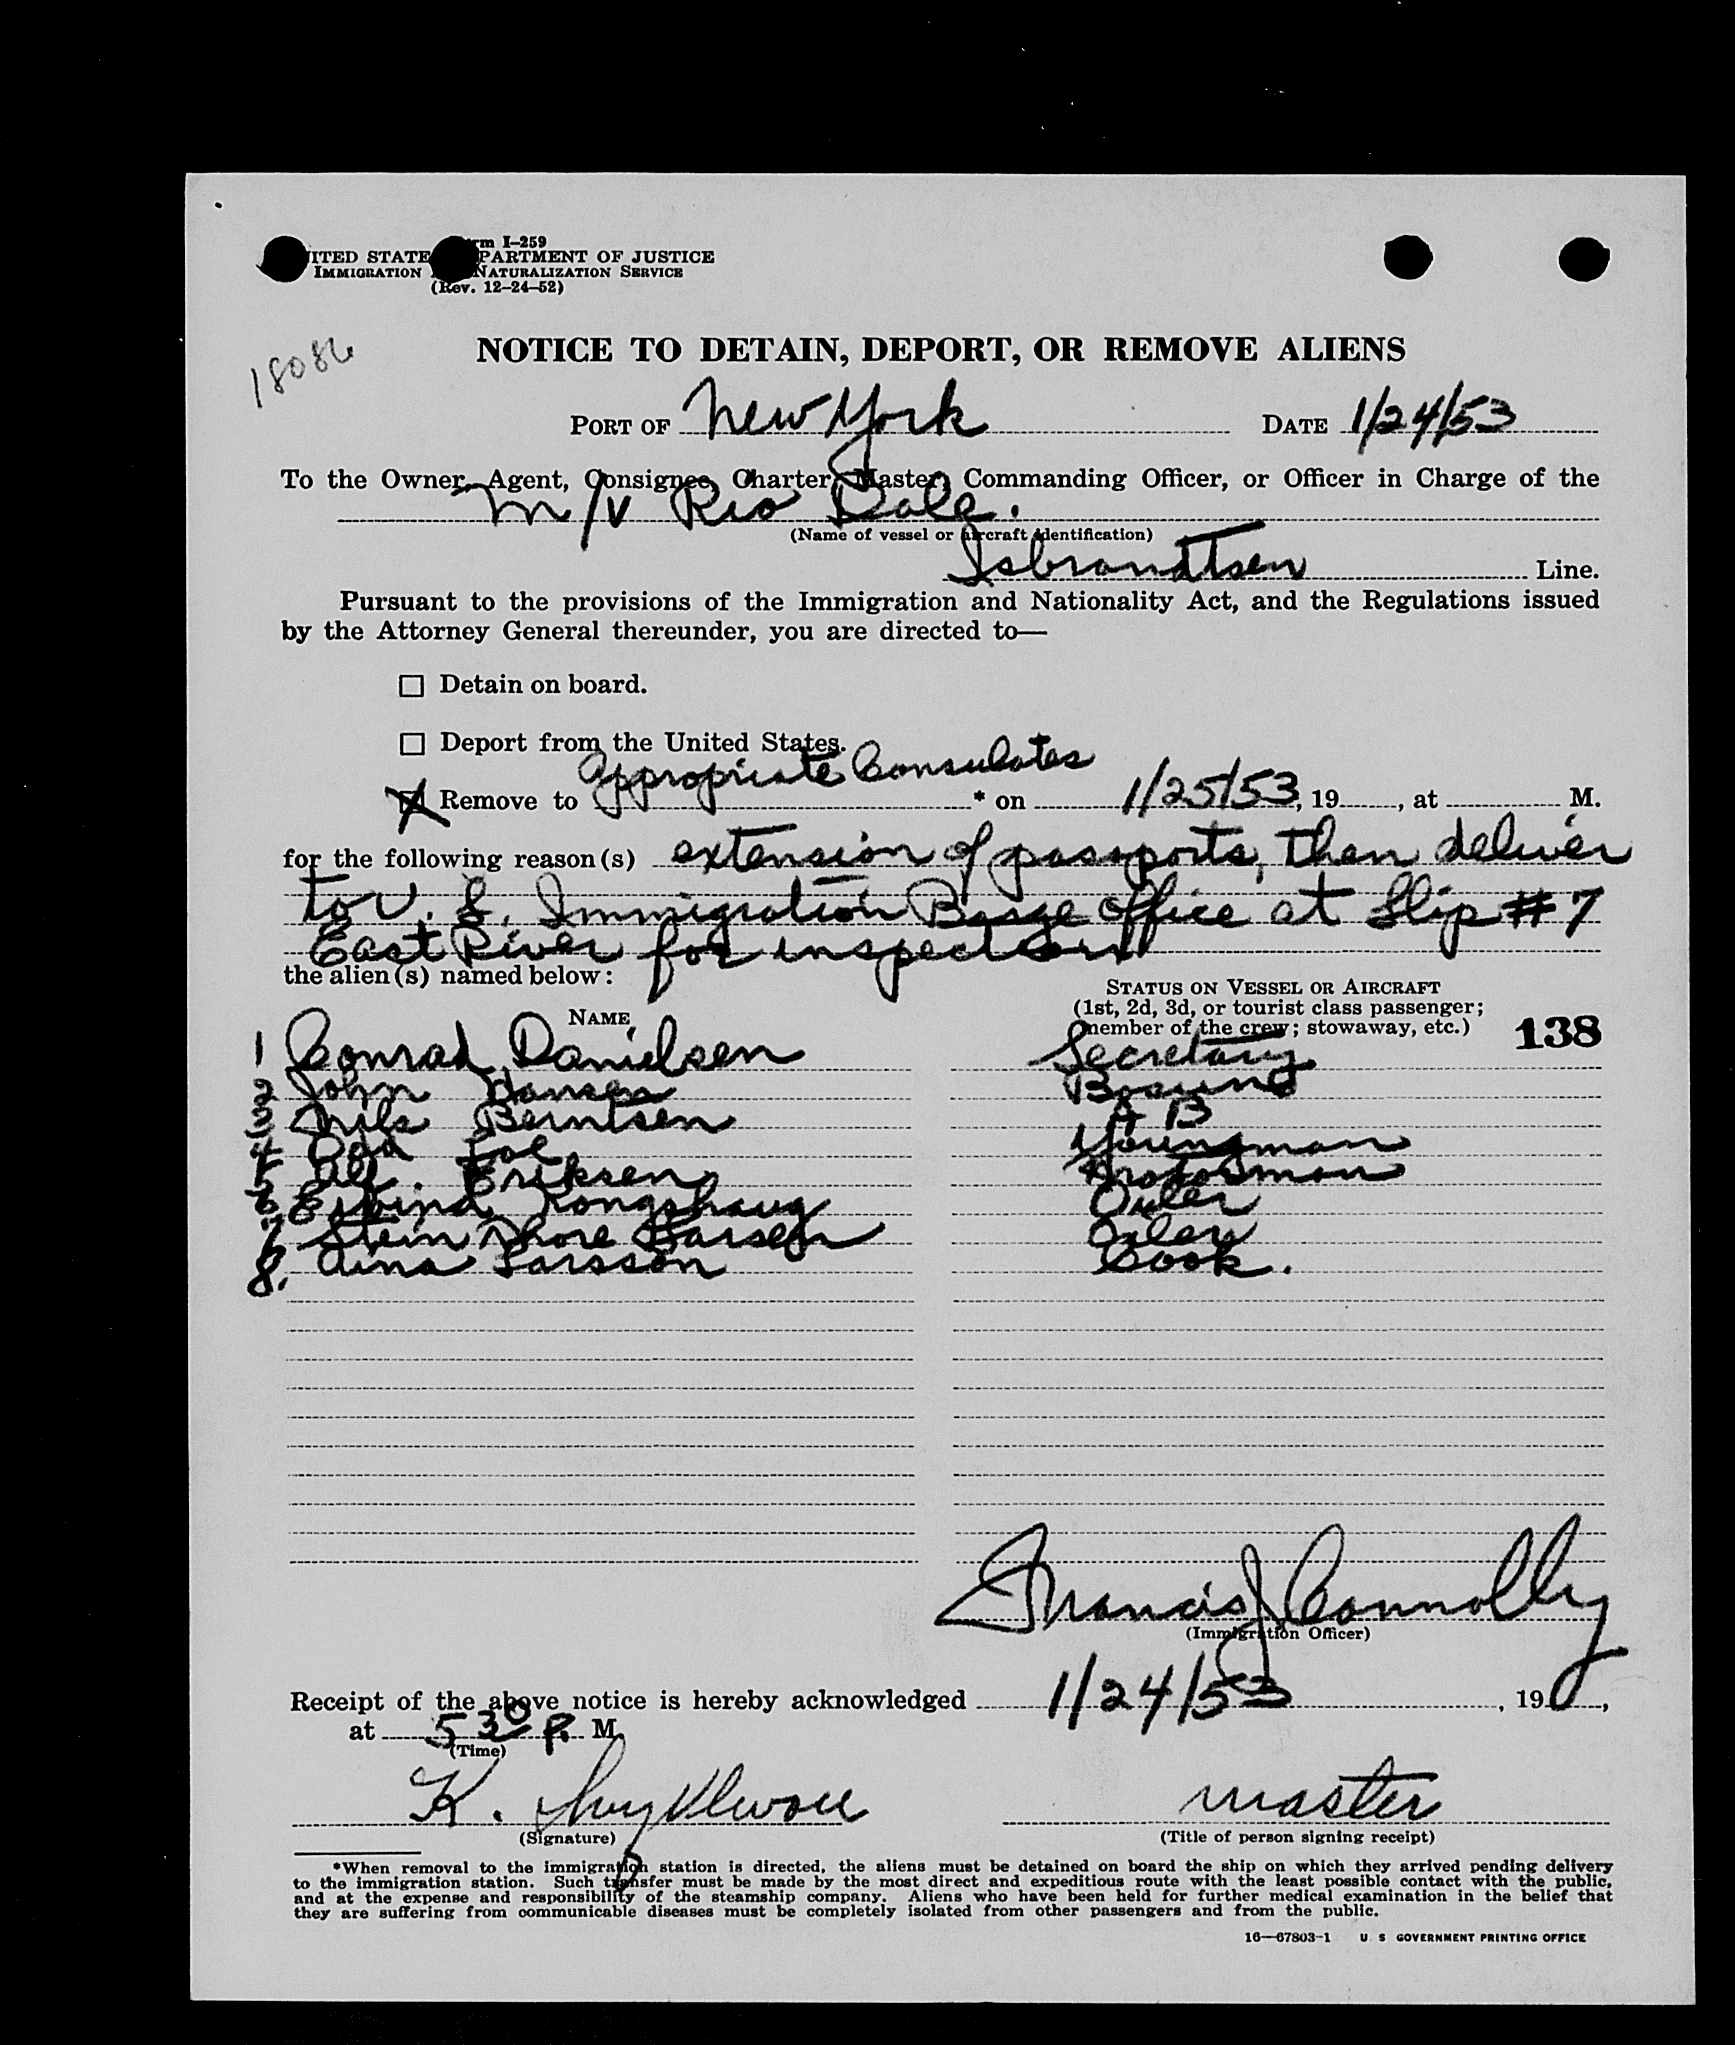 Form I-259
UNITED STATES DEPARTMENT OF JUSTICE
IMMIGRATION AND NATURALIZATION SERVICE
(Rev. 12-24-52)
18086
NOTICE TO DETAIN, DEPORT, OR REMOVE ALIENS
PORT OF New York DATE 1/24/53
To the Owner, Agent, Consignee, Charter, Master, Commanding Officer, or Officer in Charge of the
M/V Rio Dale.
(Name of vessel or aircraft identification)
Isbrandtsen Line.
Pursuant to the provisions of the Immigration and Nationality Act, and the Regulations issued
by the Attorney General thereunder, you are directed to—
Detain on board.
Deport from the United States.
Remove to Appropriate Consulates * on 1/25/53, 19, at M.
for the following reason(s) extension of passports, then deliver
to U. S. Immigration Barge Office at Slip # 7
East River for inspection
the alien(s) named below:
NAME STATUS ON VESSEL OR AIRCRAFT
(1st, 2d, 3d, or tourist class passenger;
member of the crew; stowaway, etc.) 138
1 Conrad Danielsen Secretary
2 John Hansen Bosun
3 Nils Berntsen A B
4 Odd Foe Youngman
5 Alf. Eriksen Motorman
6 Eivind Rongshaug Oiler
7 Stein Thore Larsen Oiler
8. Aina Larsson Cook.
Francis J Connolly
(Immigration Officer)
Receipt of the above notice is hereby acknowledged 1/24/53, 19,
at 5 30 P. M.
(Time)
K. master
(Signature) (Title of person signing receipt)
*When removal to the immigration station is directed, the aliens must be detained on board the ship on which they arrived pending delivery
to the immigration station. Such transfer must be made by the most direct and expeditious route with the least possible contact with the public,
and at the expense and responsibility of the steamship company. Aliens who have been held for further medical examination in the belief that
they are suffering from communicable diseases must be completely isolated from other passengers and from the public.
16—67803-1 U S GOVERNMENT PRINTING OFFICE